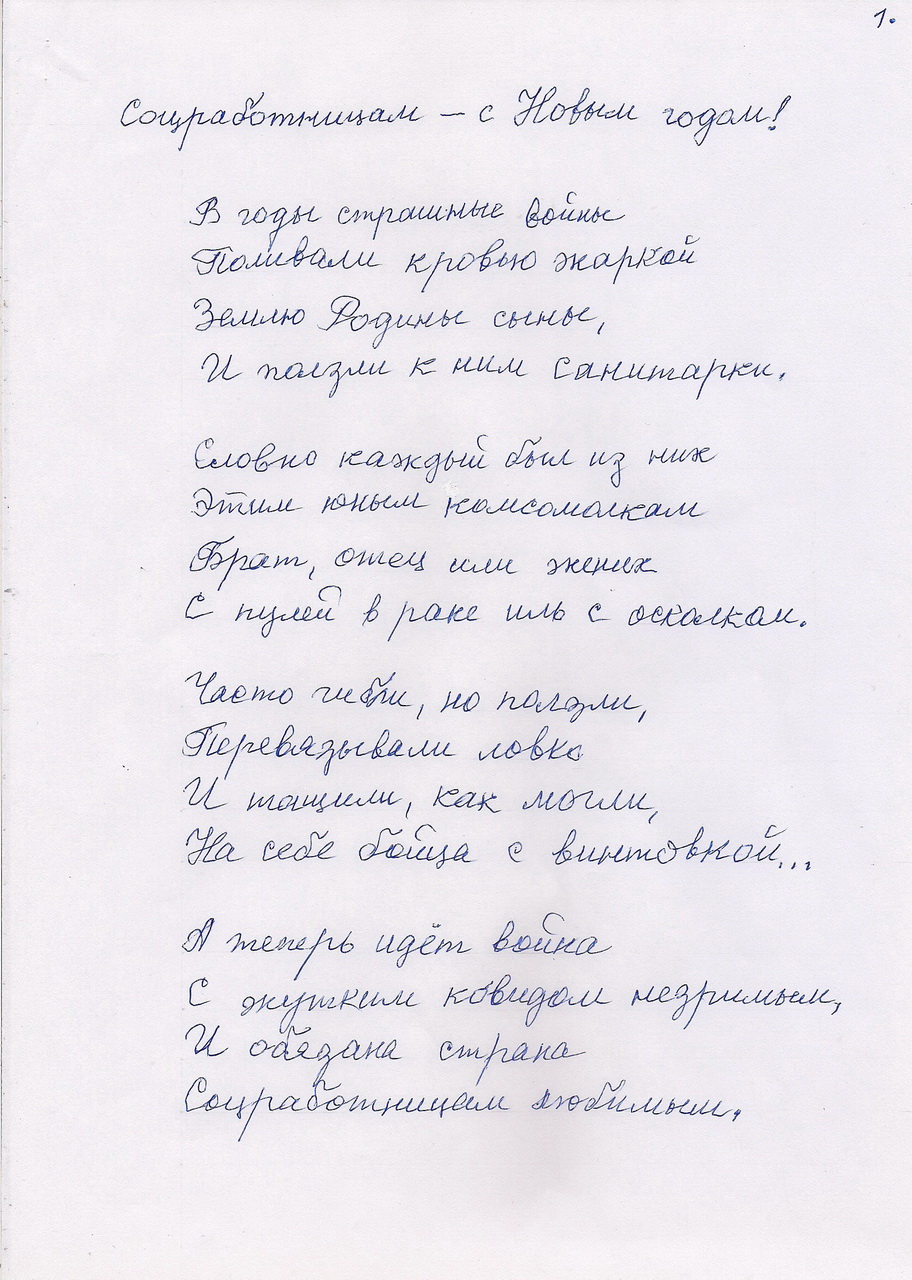 1.
Соцработницам – с Новым годом!
В годы страшные войны
Поливали кровью жаркой
Землю Родины сыны,
И ползли к ним санитарки.
Словно каждый был из них
Этим юным комсомолкам
Брат, отец или жених
С пулей в раке иль с осколком.
Часто гибли, но ползли,
Перевязывали ловко
И тащили, как могли,
На себе бойца с винтовкой...
А теперь идёт война
С жутким ковидом незримым,
И обязана страна
Соцработницам любимым.